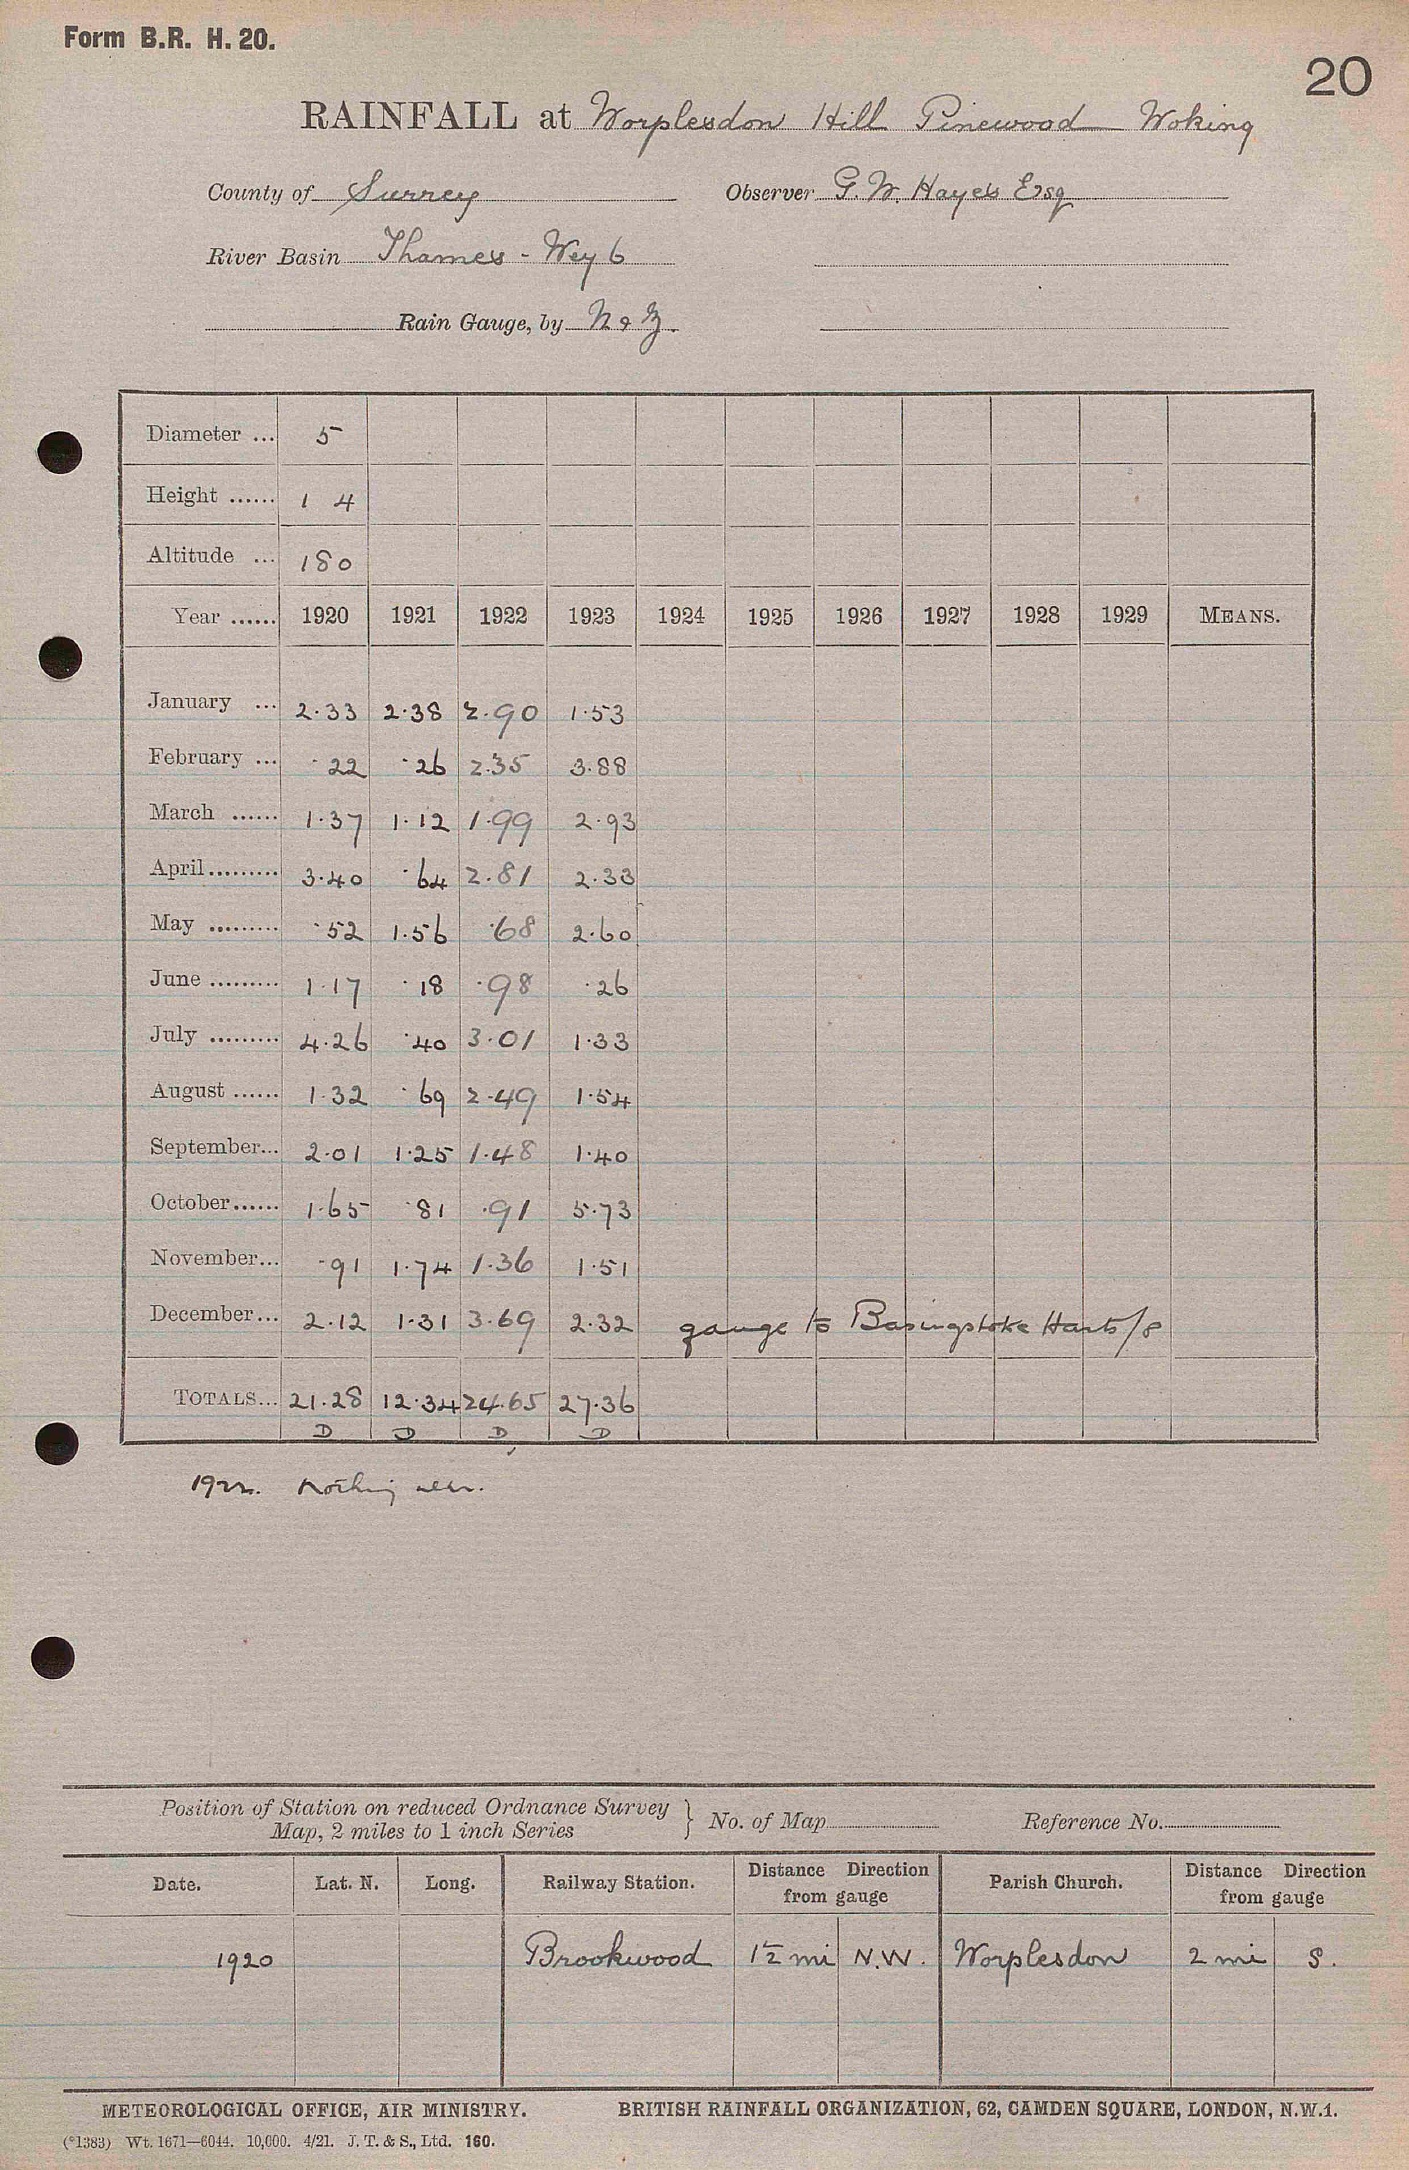 Form B.R. H. 20.
20
RAINFALL at Worplesdon Hill Pinewood Woking
County of Surrey Observer G. W. Hayes Esq
River Basin Thames - Wey 6
Rain Gauge, by N & Z
Diameter ... 5
Height ...... 1 4
Altitude ... 180
Year ...... 1920 1921 1922 1923 1924 1925 1926 1927 1928 1929 MEANS.
January ... 2.33 2.38 2.90 1.53
February ... .22 .26 2.35 3.88
March ...... 1.37 1.12 1.99 2.93
April......... 3.40 .64 2.81 2.33
May ......... .52 1.56 .68 2.60
June ......... 1.17 .18 .98 .26
July ......... 4.26 .40 3.01 1.33
August ...... 1.32 .69 2.49 1.54
September... 2.01 1.25 1.48 1.40
October...... 1.65 .81 .91 5.73
November... .91 1.74 1.36 1.51
December... 2.12 1.31 3.69 2.32 gauge to Basingstoke Hants/8
TOTALS... 21.28 12.34 24.65 27.36
D D D D
1922. Nothing near.
Position of Station on reduced Ordnance Survey
Map, 2 miles to 1 inch Series } No. of Map Reference No.
Date. Lat. N. Long. Railway Station. Distance Direction from gauge Parish Church. Distance Direction from gauge
1920 Brookwood 1½ mi N.W. Worplesdon 2 mi S.
METEOROLOGICAL OFFICE, AIR MINISTRY. BRITISH RAINFALL ORGANIZATION, 62, CAMDEN SQUARE, LONDON, N.W.1.
(*1383) Wt. 1671—6044. 10,000. 4/21. J. T. & S., Ltd. 160.